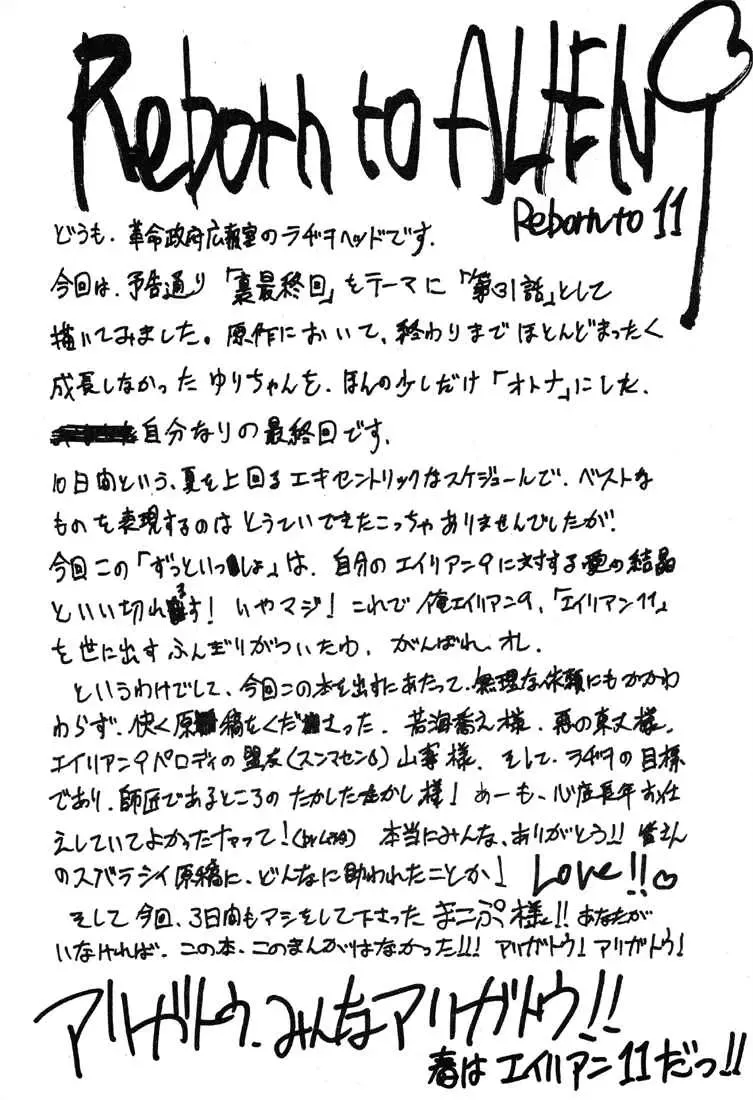 Reborn to ALIEN9
Reborn to 11
どうも、革命政府広報室のラヂヲヘッドです。
今回は、予告通り「裏最終回」をテーマに「第31話」として
描いてみました。原作において、終わりまでほとんどまったく
成長しなかったゆりちゃんを、ほんの少しだけ「オトナ」にした、
自分なりの最終回です。
10日間という、夏を上回るエキセントリックなスケジュールで、ベストな
ものを表現するのはとうていできたこっちゃありませんでしたが、
今回この「ずっといっしょ」は、自分のエイリアン9に対する愛の結晶
といい切れます! いやマジ! これで俺エイリアン9、「エイリアン11」
を世に出すふんぎりがついたわ、がんばれ、オレ。
というわけでして、今回この本を出すにあたって、無理な依頼にもかかわ
わらず、快く原稿をくださった、若海 様、 様、
エイリアン9パロディの盟友(スンマセン6)山 様、そして、ラヂヲの目標
であり、師匠であるところのたかしたたかし様! あーも、心底長年お仕
えしていてよかったナァって! 本当にみんな、ありがとう!! 皆さん
のスバラシイ原稿に、どんなに助われたことか! Love!!♡
そして今回、3日間もアシをして下さったまこぷ様!! あなたが
いなければ、この本、このまんがはなかった!!! アリガトウ! アリガトウ!
アリガトウ、みんなアリガトウ!!
春はエイリアン11だっ!!